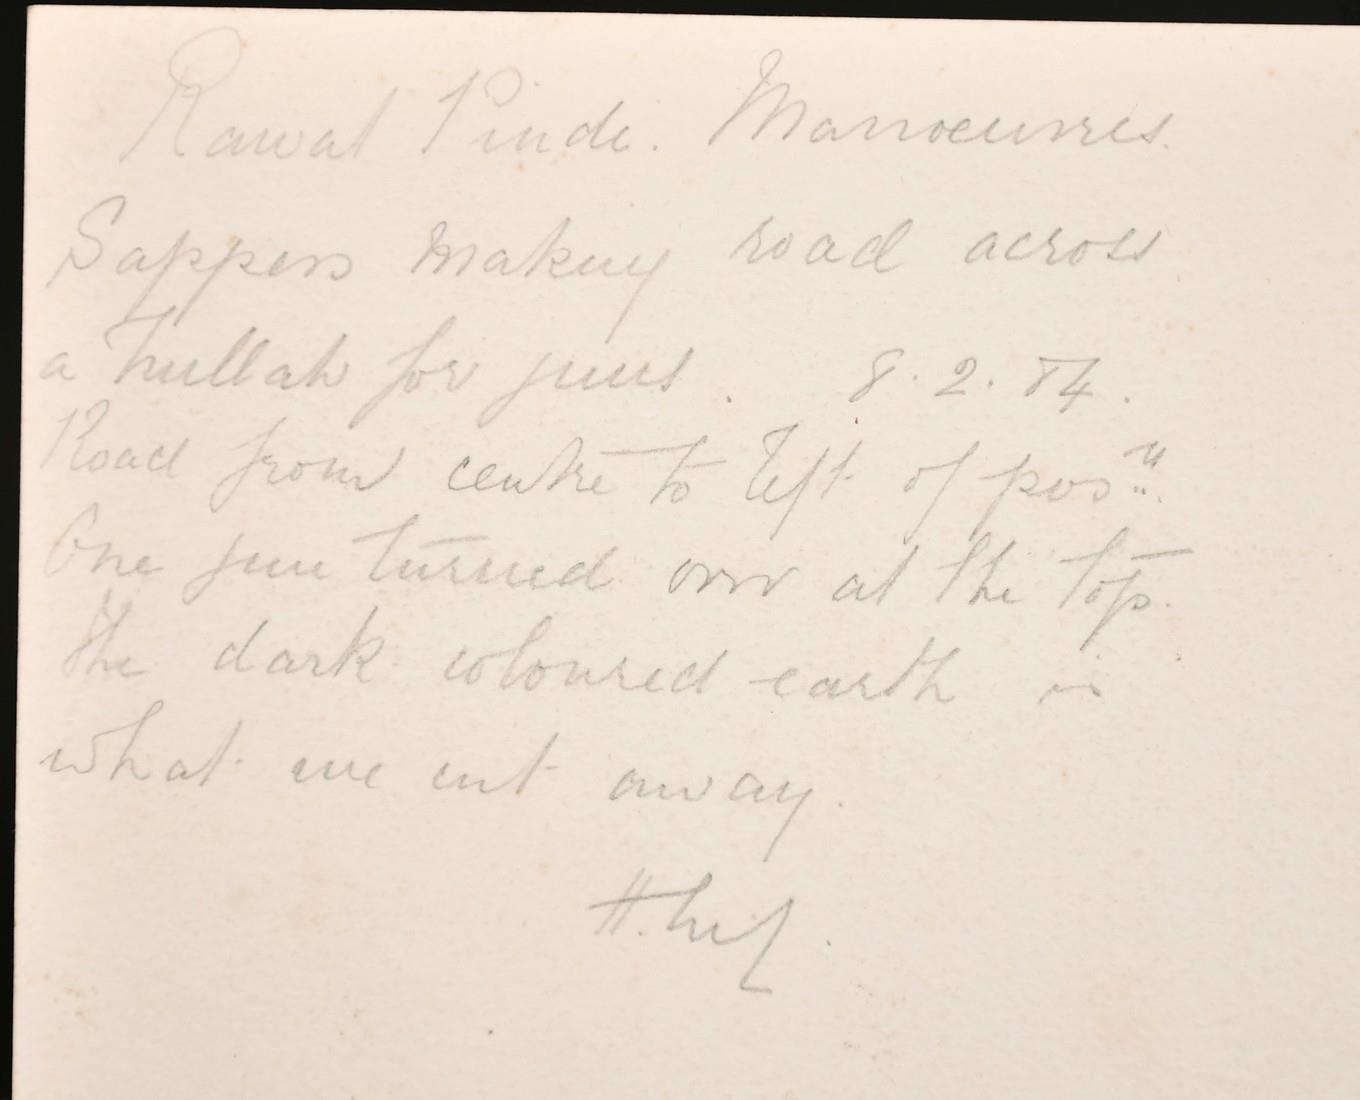 Rawal Pindi. Manoeuvres.
Sappers making road across
a Nullah for guns. 8.2.84.
Road from centre to left of posn.
One gun turned over at the top.
The dark coloured earth is
what we cut away.
H.